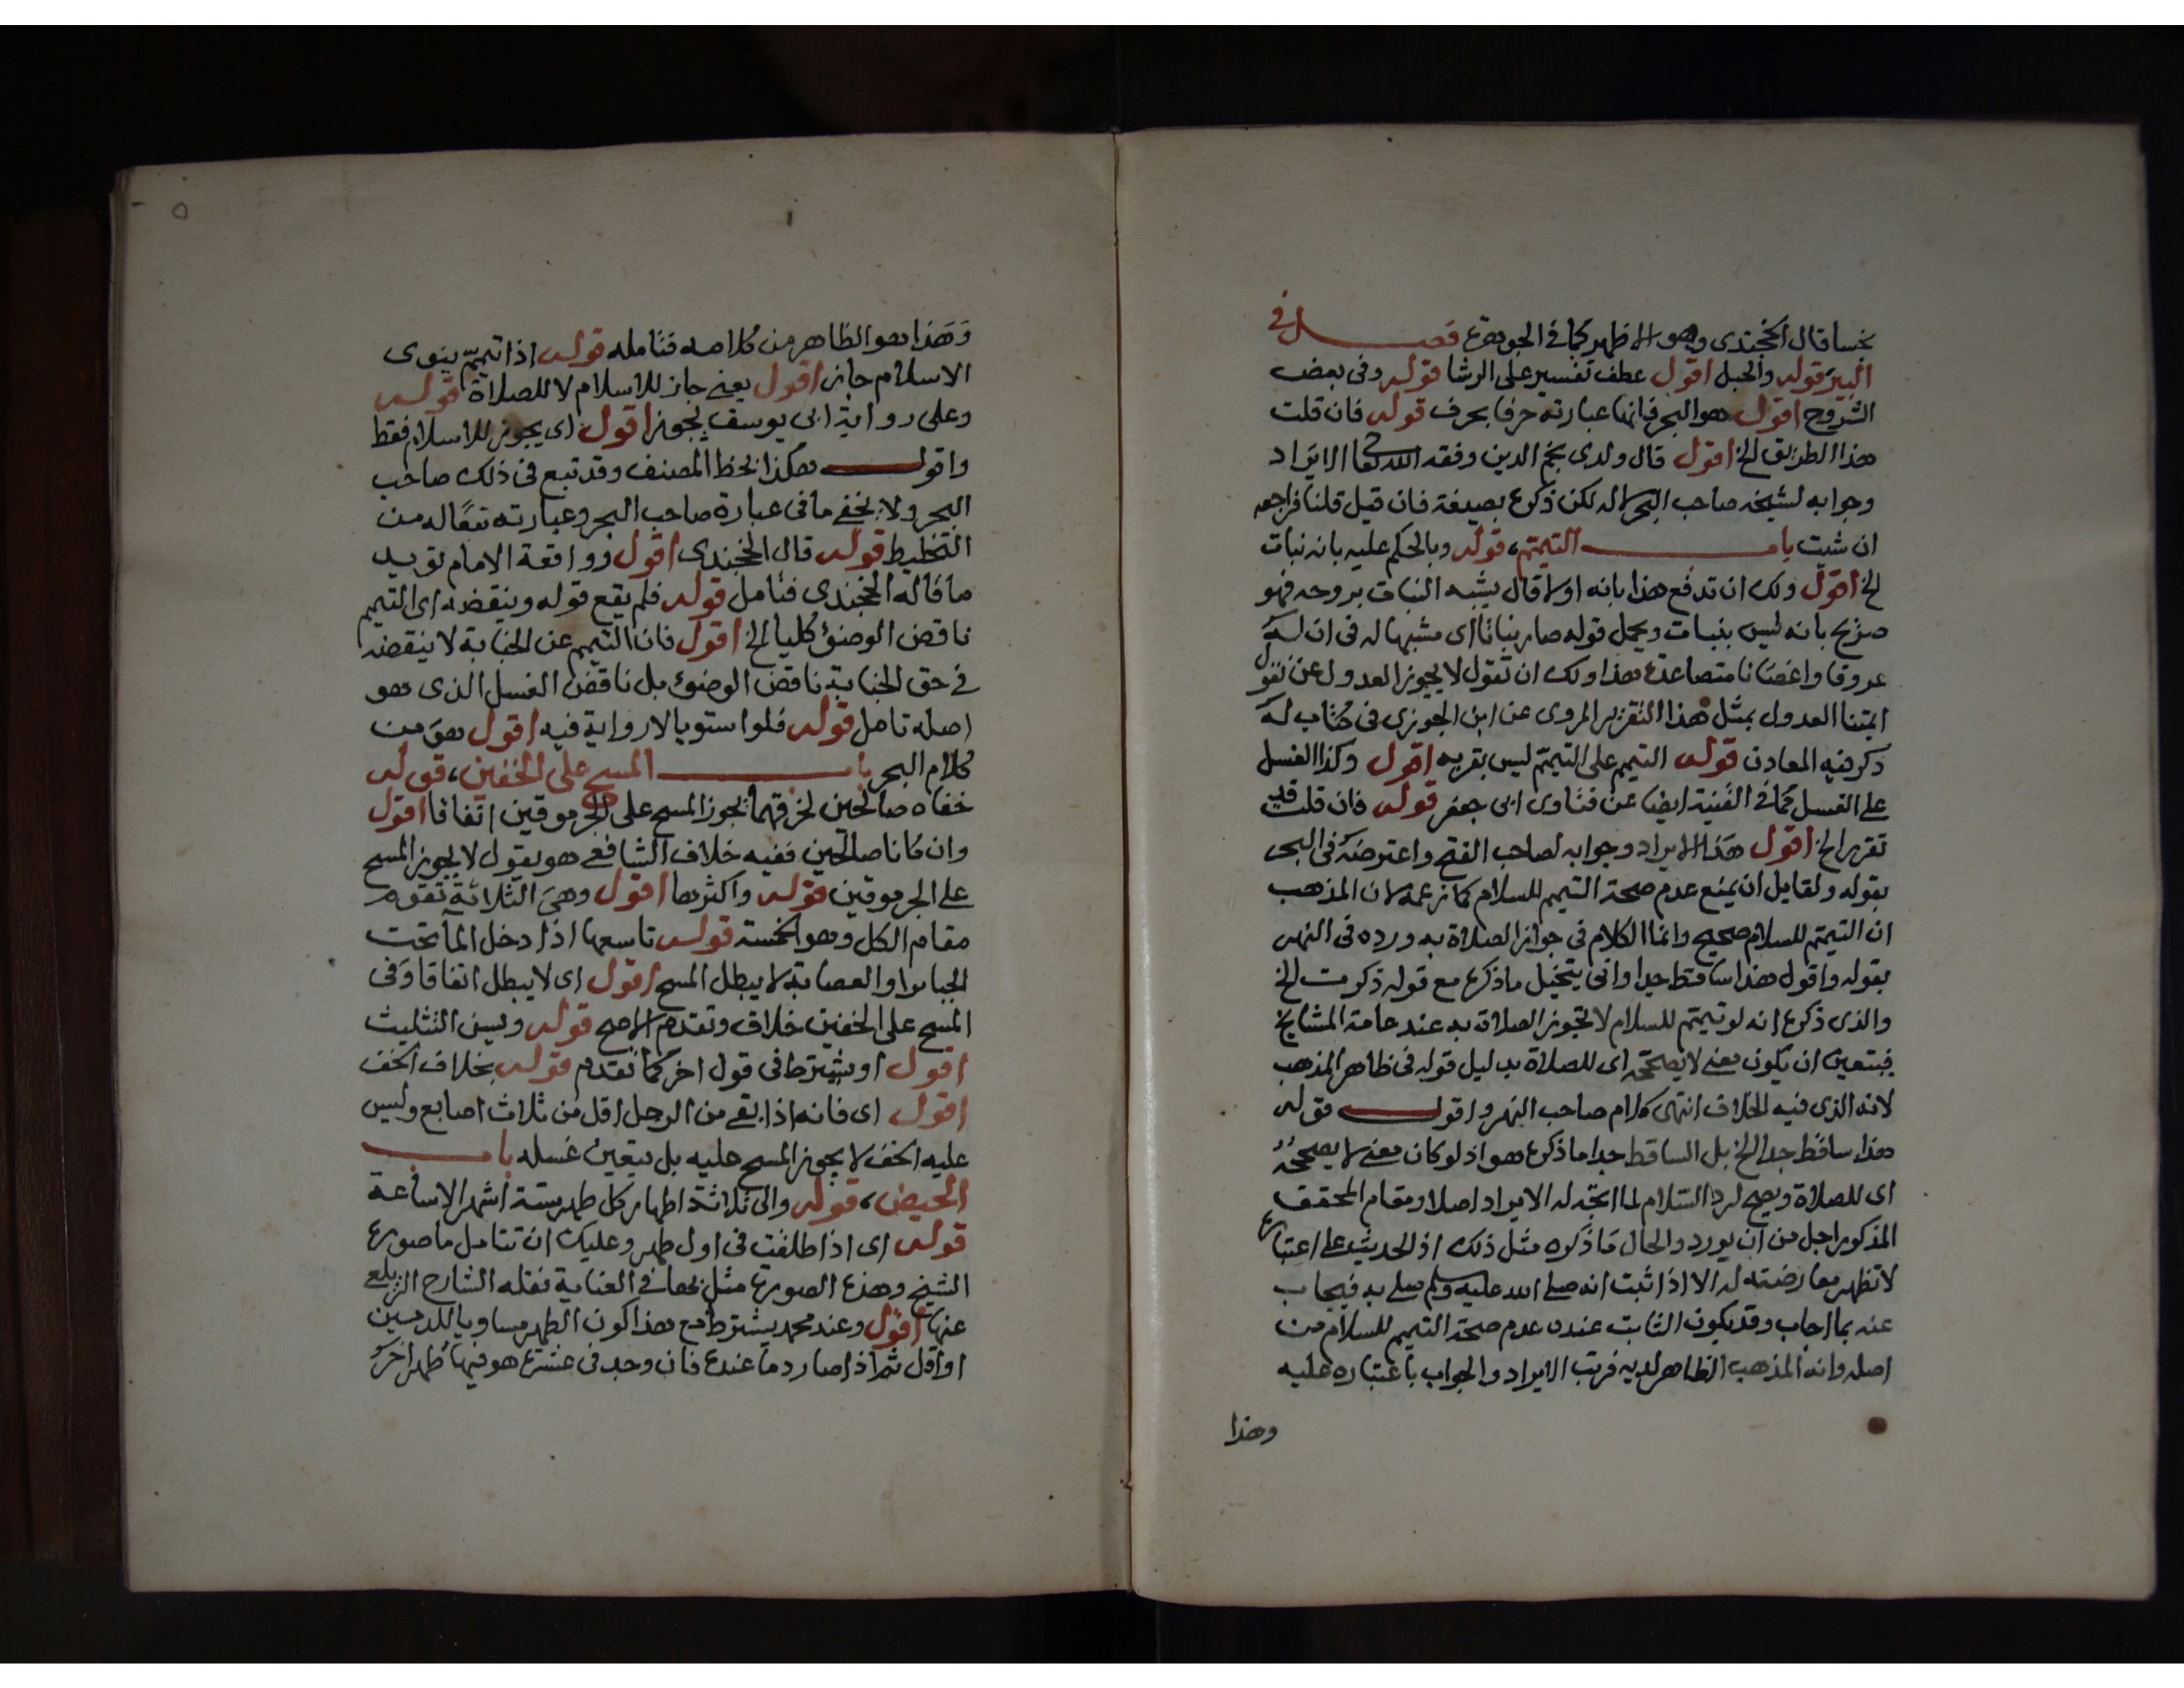 نجسا قال الخجندي وهو الاظهر كما في الجوهرة فصل في
البير قوله والحبل اقول عطف تفسير على الرشا قوله وفي بعض
الشروح اقول هو البحر فانها عبارته حرفا بحرف قوله فان قلت
هذا الطريق الخ اقول قال ولدى نجم الدين وفقه الله تعا الايراد
وجوابه لشيخه صاحب البحر الا انه لكن ذكره بصيغة فان قيل قلنا فراجعه
ان شيت باب التيمم، قوله وبالحكم عليه بانه نبات
الخ اقول ولك ان تدفع هذا بانه اولا قال يشبه النبات بروحه فهو
صريح بانه ليس بنبات ويحمل قوله صار نباتا اى مشبها له في ان له
عروقا واغصانا متصاعدة هذا ولك ان تقول لا يجوز العدول عن نقول
ايمتنا العدول بمثل هذا التقرير المروى عن ابن الجوزى في كتاب له
ذكر فيه المعادن قوله التيمم على التيمم ليس بقربه اقول وكذا الغسل
على الغسل كما في القنية ايضا عن فتاوى ابى جعفر قوله فان قلت قد
تقرر الخ اقول هذا الايراد وجوابه لصاحب الفتح واعترضه في البحر
بقوله ولقايل ان يمنع عدم صحة التيمم للسلام كما زعمه لان المذهب
ان التيمم للسلام صحيح وانما الكلام في جواز الصلاة به ورده في النهر
بقوله واقول هذا ساقط جدا وانى يتخيل ما ذكره مع قوله ذكرت الخ
والذى ذكره انه لو تيمم للسلام لا تجوز الصلاة به عند عامة المشايخ
فيتعين ان يكون معنى لا يصححه اى للصلاة بدليل قوله في ظاهر المذهب
لانه الذى فيه الخلاف انتهى كلام صاحب النهر واقول قوله
هذا ساقط جدا الخ بل الساقط جدا ما ذكره هو اذ لو كان معنى لا يصححه
اى للصلاة ويصح لرد السلام لما اتجه له الايراد اصلا ومقام المحقق
المذكور اجل من ان يورد والحال ما ذكره مثل ذلك اذ الحديث على اعتباره
لا تظهر معارضته له الا اذا ثبت انه صلى الله عليه وسلم صلى به فيجاب
عنه بما اجاب وقد يكون الثابت عنده عدم صحة التيمم للسلام من
اصله وانه المذهب الظاهر لديه فرتب الايراد والجواب باعتباره عليه
وهذا
٥
وهذا هو الظاهر من كلامه فتامله قوله اذا تيمم ينوى
الاسلام جاز اقول يعنى جاز للاسلام لا للصلاة قوله
وعلى رواية ابى يوسف يجوز اقول اى يجوز للاسلام فقط
واقول هكذا بخط المصنف وقد تبع في ذلك صاحب
البحر ولا يخفى ما في عبارة صاحب البحر وعبارته تبعا له من
التخليط قوله قال الخجندى اقول وواقعة الامام تؤيد
ما قاله الخجندى فتامل قوله فلم يقع قوله وينقضه اى التيمم
ناقض الوضوء كليا الخ اقول فان التيمم عن الجنابة لا ينقضه
في حق الجنابة ناقض الوضوء بل ناقض الغسل الذى هو
اصله تامل قوله فلو استويا لا رواية فيه اقول هو من
كلام البحر باب المسح على الخفين، قوله
خفاه صالحين لخرقهما يجوز المسح على الجرموقين اتفاقا اقول
وان كانا صالحين ففيه خلاف الشافعى هو يقول لا يجوز المسح
على الجرموقين قوله واكثرها اقول وهى الثلاثة تقوم
مقام الكل وهو الخمسة قوله تاسعها اذا دخل الما تحت
الجباير او العصابة لا يبطل المسح اقول اى لا يبطل اتفاقا وفى
المسح على الخفين خلاف وتقدم الاصح قوله ويسن التثليث
اقول او يشترط في قول اخر كما تقدم قوله بخلاف الخف
اقول اى فانه اذا بقى من الرجل اقل من ثلاث اصابع وليس
عليه الخف لا يجوز المسح عليه بل يتعين غسله باب
الحيض، قوله والى ثلاثة اطهار كل طهر ستة اشهر الا ساعة
قوله اى اذا طلقت في اول طهر وعليك ان تتامل ما صوره
الشيخ وهذه الصورة مثل بها في العناية نقله الشارح الزيلعى
عنها اقول وعند محمد يشترط مع هذا كون الطهر مساويا للدمين
او اقل ثم اذا صار دما عنده فان وجد في عشرة هو فيها طهر اخر